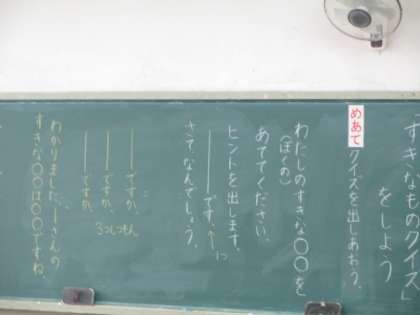 「すきなものクイズ」
をしよう
めあて クイズを出しあおう。
わたしのすきな〇〇を
(ぼくの)
あててください。
ヒントを出します。
――です。
さてなんでしょう。
――ですか。
――ですか。
――ですか。
3つしつもん
わかりました。―さんの
すきな〇〇は〇〇ですね。